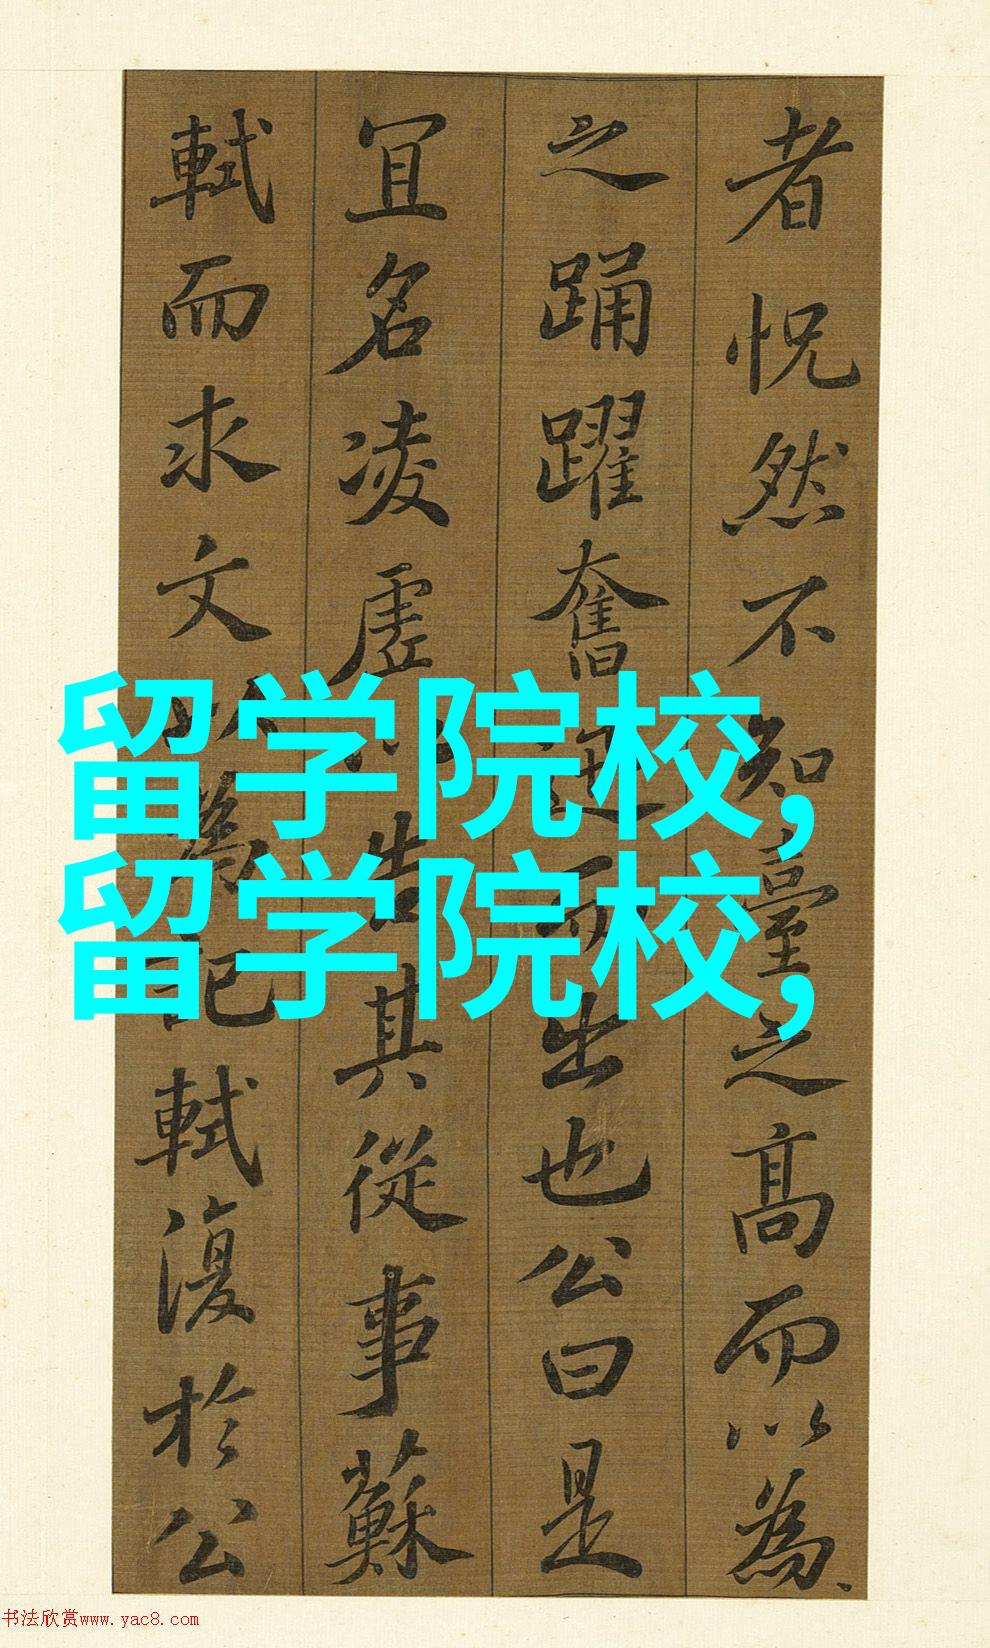 者怳然不知臺之高而以為
之踊躍奮迅而出也公曰是
宜名凌虛以告其從事蘇
軾而求文以為記軾復於公
留学院校,
留学院校,
书法欣赏www.yac8.com